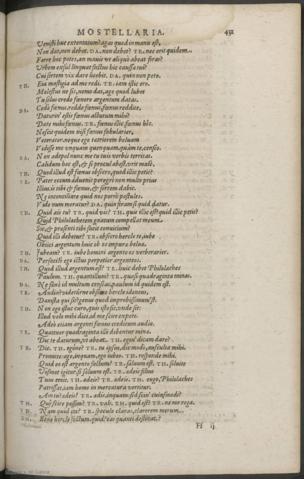 MOSTELLARIA. 451
Venisti huc extentatum? agas quod in manu est,
Non dat, non debet. DA. non debet? TR. nec erit quidem
Ferre hoc potes, an mauis ut aliquò abeat foras?
Urbem exul linquat factus hic caussa tui?
Cui sortem vix dare licebit. DA. quin non peto.
TR. Eia mastigia ad me redi. TR. iam isti ero.
Molestus ne sis, nemo dat, age quod lubet
Tu solus credo fœnore argentum datas.
DA. Cedo fœnus, redde fœnus, fœnus reddite,
Daturin' estis fœnus
Date mihi fœnus. TR. fœnus illic fœnus hic.
Nescit quidem nisi fœnus fabularier,
Veterator, neque ego tetriorem beluam
Vidisse me unquam quenquam, quàm te, censeo.
DA. Non edepol nunc me tu istis verbis territas.
Calidum hoc est, & si procul abest, urit malè,
TH. Quod illuc est fœnus obsecro, quod illic petit?
TR. Pater eccum aduenit peregre non multo prius
Illius, is tibi & fœnus, & sortem dabit.
Ne inconciliare quid nos porrò postules.
Vide num moratur? DA. quin feram si quid datur.
TH. Quid ais tu? TR. quid vis? TH. quis illic est? quid illic petit?
Quid Philolachetem gnatum compellat meum
Sic, & præsenti tibi facit conuicium?
Quid illi debetur? TR. obsecro hercle te, iube
Obiici argentum huic ob os impuræ beluæ.
TH. Iubeam? TR. iube homini argento os verberarier.
DA. Perfacilè ego ictus perpetior argenteos.
TH. Quid illud argentum est? TR. huic debet Philolaches
Paulum. TH. quantillum? TR. quasi quadraginta minas.
DA. Ne sanè id multum censeas, paulum id quidem est.
TR. Audin'? videturne obsecro hercle idoneus,
Danista qui sit? genus quod improbissimum 'st.
TH. Non ego istuc curo, qui sit, vnde sit:
Illud volo mihi dici, id me scire expeto.
Adeò etiam argenti fœnus creditum audio.
TR. Quatuor quadraginta illi debentur minæ.
Dic te daturum, vt abeat. TH. egon' dicam dare?
TR. Dic. TH. egóne? TR. tu ipsus, dic modò, ausculta mihi.
Promitte: age, inquam, ego iubeo. TH. responde mihi.
Quid eo est argento factum? TR. saluum est. TH. soluite
Vosmet igitur, si saluum est. TR. ædeis filius
Tuus emit. TH. ædeis? TR. ædeis. TH. euge, Philolaches
Patrissat, iam homo in mercatura vortitur.
Ain tu? ædeis? TR. ædeis, inquam, sed scin' cuiusmodi?
TH. Qui scire possim? TR. vah. TH. quid est? TR. ne me roga.
TH. Nam quid ita? TR. speculo claras, clarorem merum.
TH. Bene hercle factum. quid? eas quanti destinat?
H ij